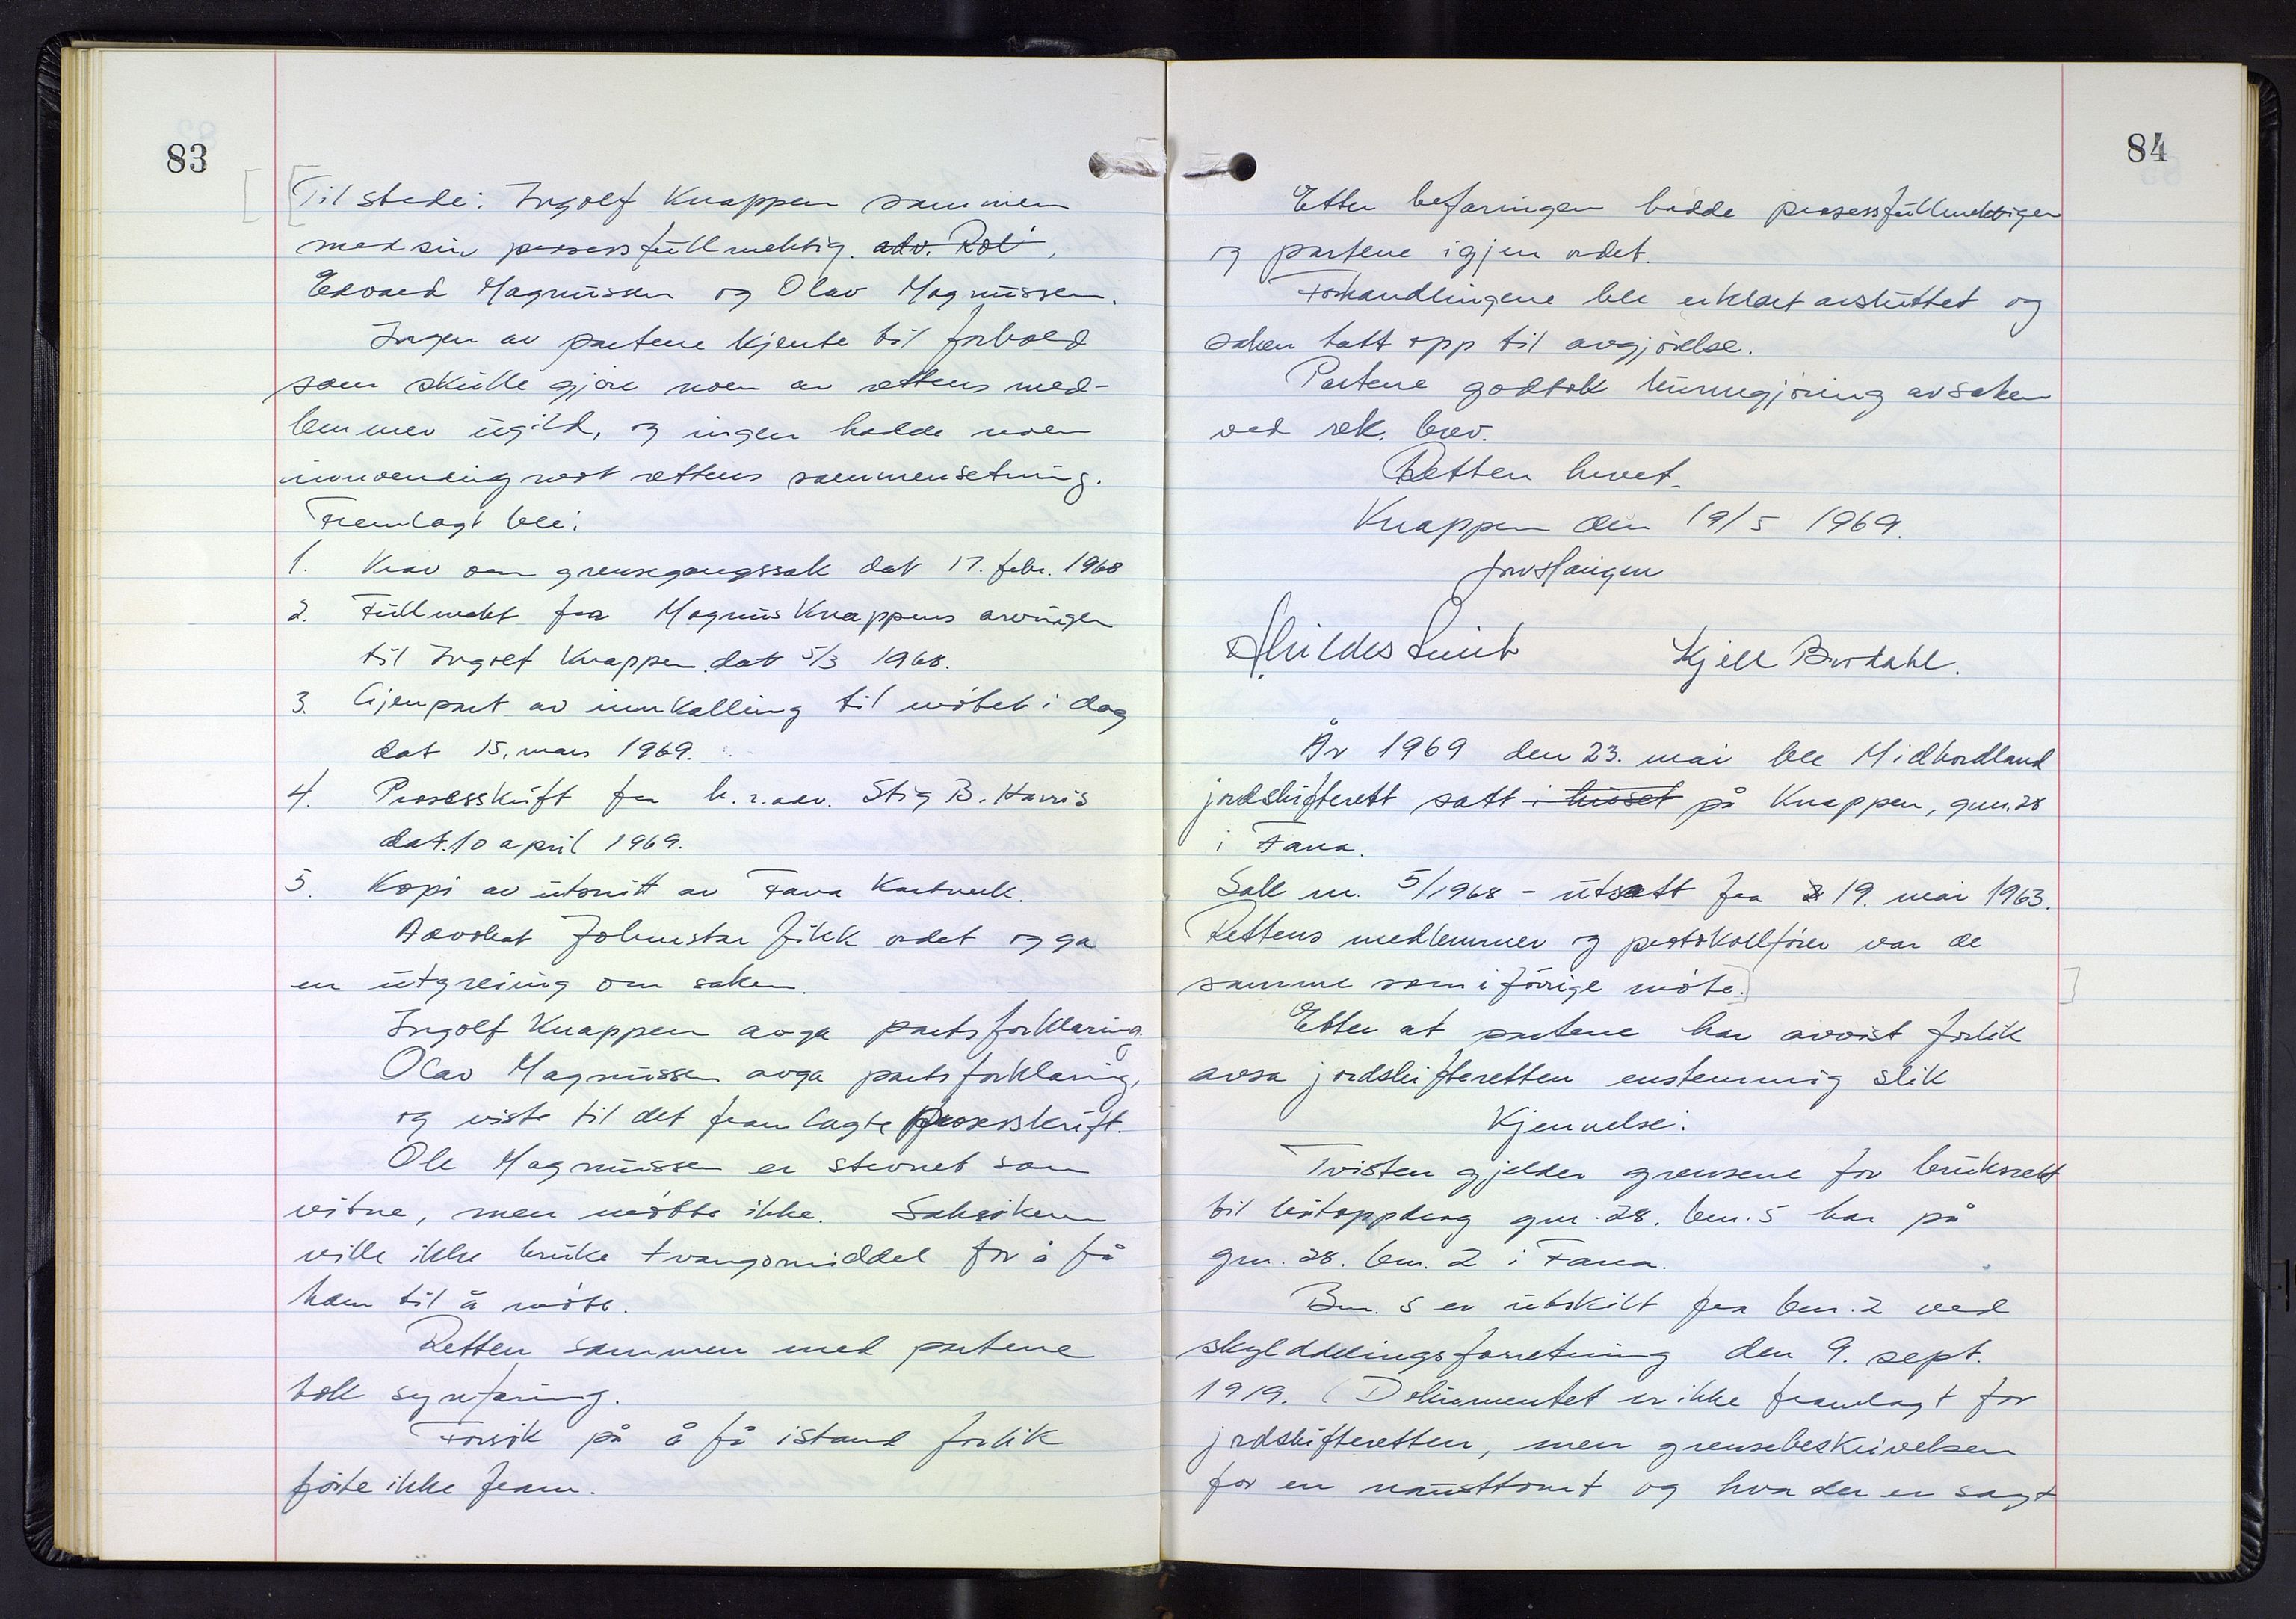 83
Til stede: Ingolf Knappen sammen
med sin prosessfullmektig. adv. Rol,
Edvard Magnussen og Olav Magnussen.
Ingen av partene kjente til forhold
som skulle gjøre noen av rettens med-
lemmer ugild, og ingen hadde noen
innvending mot rettens sammensetning.
Fremlagt ble:
1. Krav om grensegangssak dat 17. febr. 1968
2. Fullmakt fra Magnus Knappens arvinger
til Ingolf Knappen dat 5/3 1968.
3. Gjenpart av innkalling til møtet i dag
dat 15. mars 1969.
4. Prosesskrift fra h.r.adv. Stig B. Harris
dat. 10 april 1969.
5. Kopi av utsnitt av Fana Kartverk.
Advokat Johnstar fikk ordet og ga
en utgreiing om saken.
Ingolf Knappen avga partsforklaring.
Olav Magnussen avga partsforklaring,
og viste til det framlagte prosesskrift.
Ole Magnussen er stevnet som
vitne, men møtte ikke. Saksøkeren
ville ikke bruke tvangsmiddel for å få
ham til å møte.
Retten sammen med partene
tok synfaring.
Forsøk på å få istand forlik
førte ikke fram.
84
Etter befaringen hadde prosessfullmektigen
og partene igjen ordet.
Forhandlingene ble erklært avsluttet og
saken tatt opp til avgjørelse.
Partene godtok kunngjøring av saken
ved rek. brev.
Retten hevet.
Knappen den 19/5 1969.
Kjell Birdahl.
År 1969 den 23. mai ble Midhordland
jordskifterett satt i huset på Knappen, gnr. 28
i Fana.
Sak nr. 5/1968 - utsatt fra 19. mai 1963.
Rettens medlemmer og protokollfører var de
samme som i forrige møte.
Etter at partene har avvist forlik
avsa jordskifteretten enstemmig slik
Kjennelse:
Tvisten gjelder grensene for bruksrett
til båtoppdrag gnr. 28. bnr. 5 har på
gnr. 28. bnr. 2 i Fana.
Bnr. 5 er utskilt fra bnr. 2 ved
skylddelingsforretning den 9. sept.
1919. (Dokumentet er ikke framlagt for
jordskifteretten, men grensebeskrivelsen
for en nausttomt og hva der er sagt